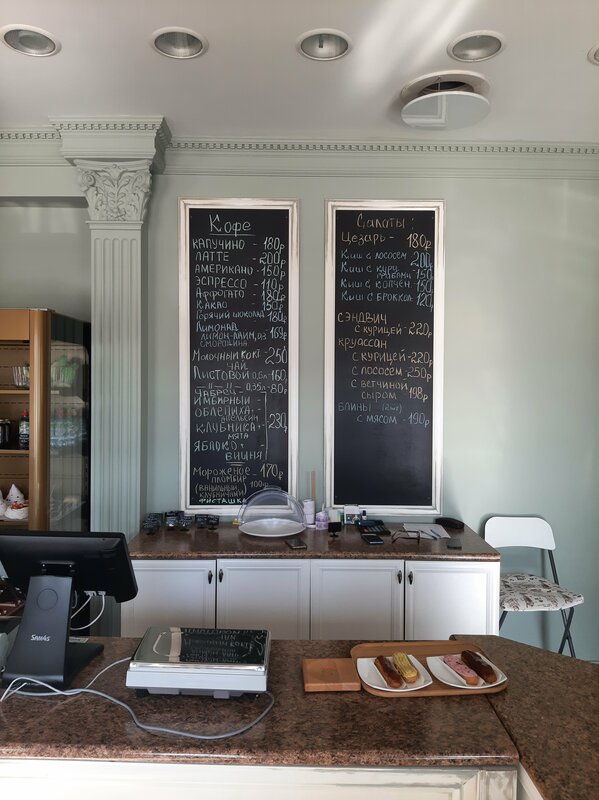 Кофе
КАПУЧИНО - 180р
ЛАТТЕ 200р
АМЕРИКАНО - 150р
ЭСПРЕССО - 110р
АФФОГАТО - 180р
КАКАО - 150р
Горячий шоколад 180р
Лимонад
ЛИМОН-ЛАЙМ, 169р
СМОРОДИНА
Молочный кокт 250
ЧАЙ
Листовой 0,6л - 160р
— 11 — 11 — 0,35л - 80р
ЧАБРЕЦ
ИМБИРНЫЙ
ОБЛЕПИХА-
АПЕЛЬСИН
КЛУБНИКА + 230р
МЯТА
ЯБЛОКО +
ВИШНЯ
Мороженое - 170р
ПЛОМБИР
(ВАНИЛЬНЫЙ, 100гр
КЛУБНИЧНЫЙ
ФИСТАШКА
Салаты:
Цезарь - 180р
Киш с лососем 200р
Киш с куриц
грибами 150
Киш с копчён 150
Киш с брокколи 120р
СЭНДВИЧ
с КУРИЦЕЙ - 220р
КРУАССАН
с КУРИЦЕЙ - 220р
с ЛОСОСЕМ - 250р
с ВЕТЧИНОЙ
СЫРОМ 198р
БЛИНЫ (2шт)
с МЯСОМ - 190р
SAM4S